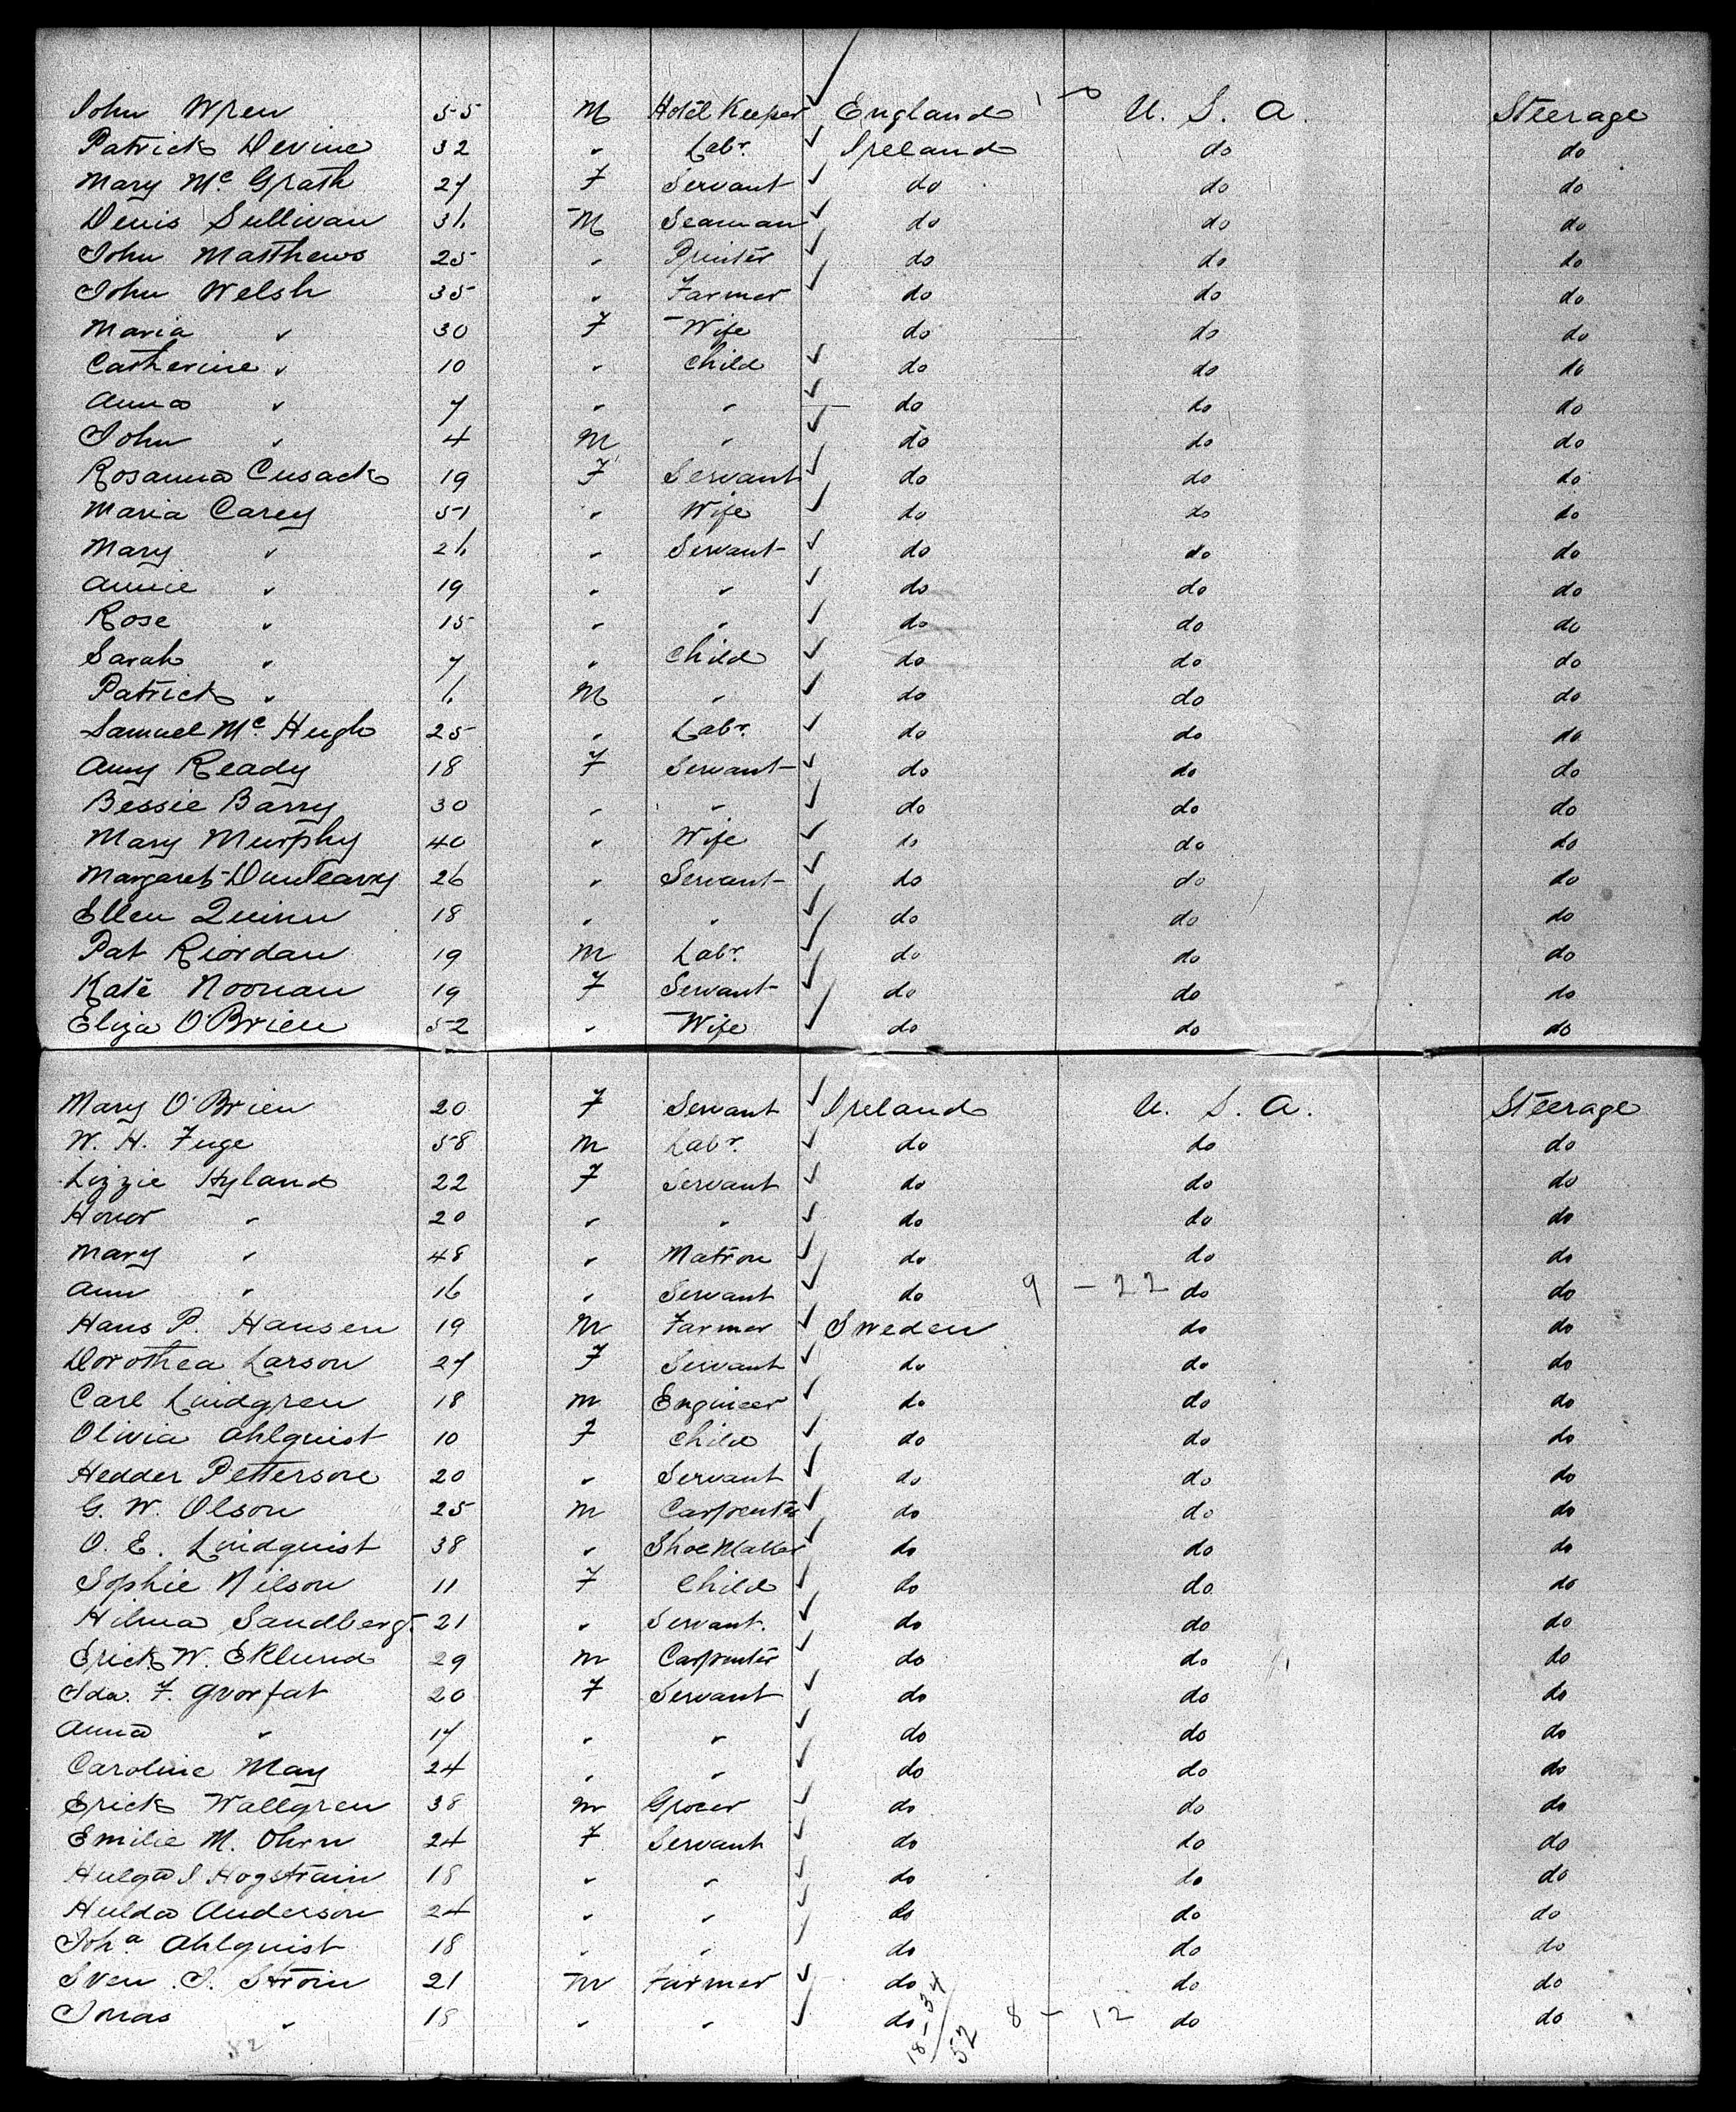 John Wren 55 M Hotel Keeper ✓ England 1 - 0 U. S. A. Steerage
Patrick Devine 32 " Labr. ✓ Ireland do do
Mary Mc Grath 27 F Servant ✓ do do do
Denis Sullivan 36 M Seaman ✓ do do do
John Matthews 25 " Printer ✓ do do do
John Welsh 35 " Farmer ✓ do do do
Maria " 30 F Wife do do do
Catherine " 10 " Child ✓ do do do
Anna " 7 " " ✓ do do do
John " 4 M " ✓ do do do
Rosanna Cusack 19 F Servant ✓ do do do
Maria Carey 51 " Wife ✓ do do do
Mary " 26 " Servant ✓ do do do
Annie " 19 " " ✓ do do do
Rose " 15 " " ✓ do do do
Sarah " 7 " Child ✓ do do do
Patrick " 6 M " ✓ do do do
Samuel Mc. Hugh 25 " Labr. ✓ do do do
Amy Ready 18 F Servant ✓ do do do
Bessie Barry 30 " " ✓ do do do
Mary Murphy 40 " Wife ✓ do do do
Margaret Dunleavy 26 " Servant ✓ do do do
Ellen Quinn 18 " " ✓ do do do
Pat Riordan 19 M Labr. ✓ do do do
Kate Noonan 19 F Servant ✓ do do do
Eliza O'Brien 52 " Wife ✓ do do do
Mary O'Brien 20 F Servant ✓ Ireland U. S. A. Steerage
W. H. Fuge 58 M Labr. ✓ do do do
Lizzie Hyland 22 F Servant ✓ do do do
Honor " 20 " " ✓ do do do
Mary " 48 " Matron ✓ do do do
Ann " 16 " Servant ✓ do 9 - 22 do do
Hans P. Hansen 19 M Farmer ✓ Sweden do do
Dorothea Larson 27 F Servant ✓ do do do
Carl Lindgren 18 M Engineer ✓ do do do
Olivia Ahlquist 10 F Child ✓ do do do
Hedder Petterson 20 " Servant ✓ do do do
G. W. Olson 25 M Carpenter ✓ do do do
O. E. Lindquist 38 " Shoe Maker ✓ do do do
Sophie Nilson 11 F Child ✓ do do do
Hilma Sandberg 21 " Servant. ✓ do do do
Erick W. Eklund 29 M Carpenter ✓ do do do
Ida. F. Gvorfat 20 F Servant ✓ do do do
Anna " 17 " " ✓ do do do
Caroline May 24 " " ✓ do do do
Erick Wallgren 38 M Grocer ✓ do do do
Emilie M. Ohrn 24 F Servant ✓ do do do
Hulga S Hogstrain 18 " " ✓ do do do
Hulda Anderson 24 " " ✓ do do do
Joha Ahlquist 18 " " ✓ do do do
Sven. J. Stroin 21 M Farmer ✓ do do do
Jonas " 18 " " ✓ do 8 - 12 do do
52 18-34/52